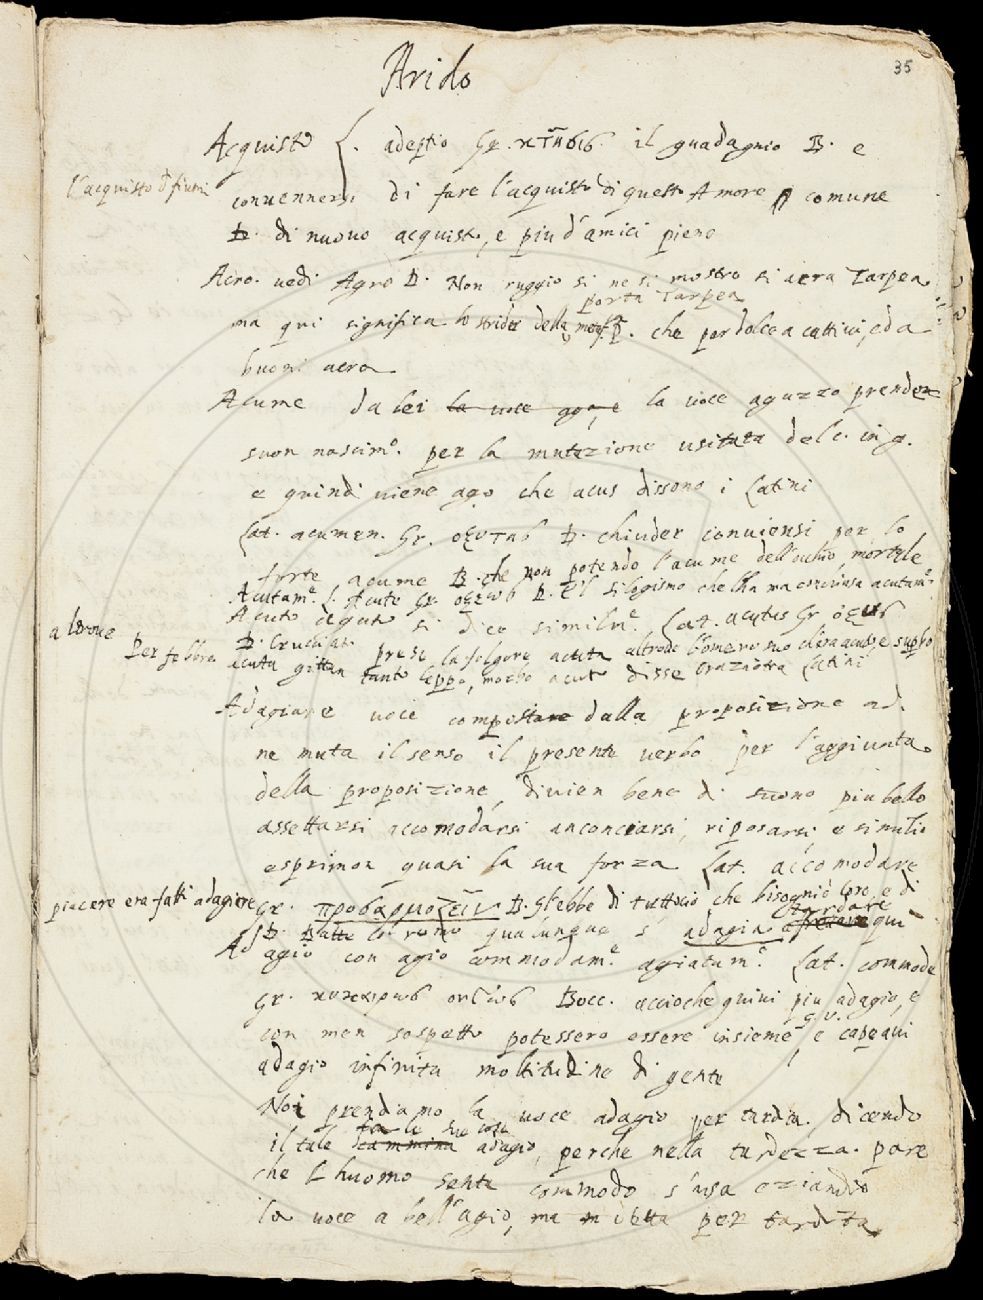 Arido
35
Acquisto L. adeptio Gr. κτῆσις. il guadagnio B. e
l'acquisto d fiumi
convennersi di fare l'acquisto di questo Amore comune
D. di nuovo acquisto, e piu d'amici pieno
Acro. vedi Agro D. Non ruggio si ne si mostro si acra Tarpea
porta Tarpea
ma qui significa lo strider della che per dolce a cattivi, ed a
buoni acra
Acume da lei la voce ago, e la voce aguzzo prender
suon nascim.o per la mutazione usitata del c. in g.
e quindi viene ago che acus dissono i Latini
Lat. acumen. Gr. οξυτης D. chiuder conviensi per lo
forte acume D. che non potendo l'acume dell'occhio mortale
Acutam.e L. Acute Gr. οξεως D. È'l silogismo che l'ha ma conchiusa acutam.e
Acuto aguto si dice similm.e Lat. acutus Gr. οξυς
altrove
Per febbre acuta gittan tanto leppo, morbo acuto disse Latini
D. presi la folgore acuta altrove
Adagiare voce compostare dalla proposizione ad.
ne muta il senso il presente verbo per l'aggiunta
della proposizione, divien bene di suono piu bello
assettarsi accomodarsi anconciarsi, riposarsi, e simili
esprimon quasi la sua forza Lat. accomodare
piacere era fatti adagiere
Gr. προσαρμοζειν D. Gl'ebbe di tuttociò che bisogniò loro e di
tardare
D. Batte col remo qualunque s' adagia qui
Ad agio con agio commodam.e agiatam.e Lat. commode
Gr. Bocc. accioche quivi piu adagio, e
con men sospetto potessero essere insieme e capeavi
q. v.
adagio infinita moltitudine di gente
Noi prendiamo la voce adagio per tardia. dicendo
fa le sue cose
il tale cammina adagio, perche nella tardezza. pare
che l'huomo senta commodo s'usa eziandio
la voce a bell'agio, ma per tardità